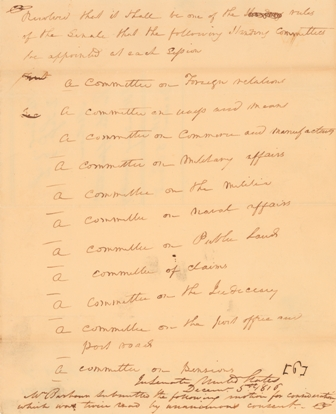 Resolved that it shall be one of the rules
of the Senate that the following Standing Committees
be appointed at each Session
A Committee on Foreign relation
A committee on ways and means
A committee on Commerce and manufactures
A committee on Military affairs
A committee on the militia
A committee on naval affairs
A committee on Public Lands
A committee of claims
A committee on the Judiciary
A committee on the post office and
post roads
A committee on Pensions [6]
In Senate United States
Decemr 5th 1816.
Mr Barbour submitted the following motion for consideration
which was twice read by unanimous consent.